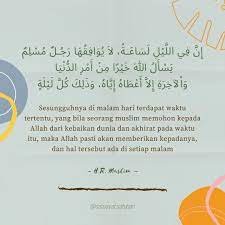 إِنَّ فِي اللَّيْلِ لَسَاعَةً، لَا يُوَافِقُهَا رَجُلٌ مُسْلِمٌ
يَسْأَلُ اللهَ خَيْرًا مِنْ أَمْرِ الدُّنْيَا
وَالْآخِرَةِ إِلَّا أَعْطَاهُ إِيَّاهُ، وَذَلِكَ كُلَّ لَيْلَةٍ
Sesungguhnya di malam hari terdapat waktu
tertentu, yang bila seorang muslim memohon kepada
Allah dari kebaikan dunia dan akhirat pada waktu
itu, maka Allah pasti akan memberikan kepadanya,
dan hal tersebut ada di setiap malam
~ H.R. Muslim ~